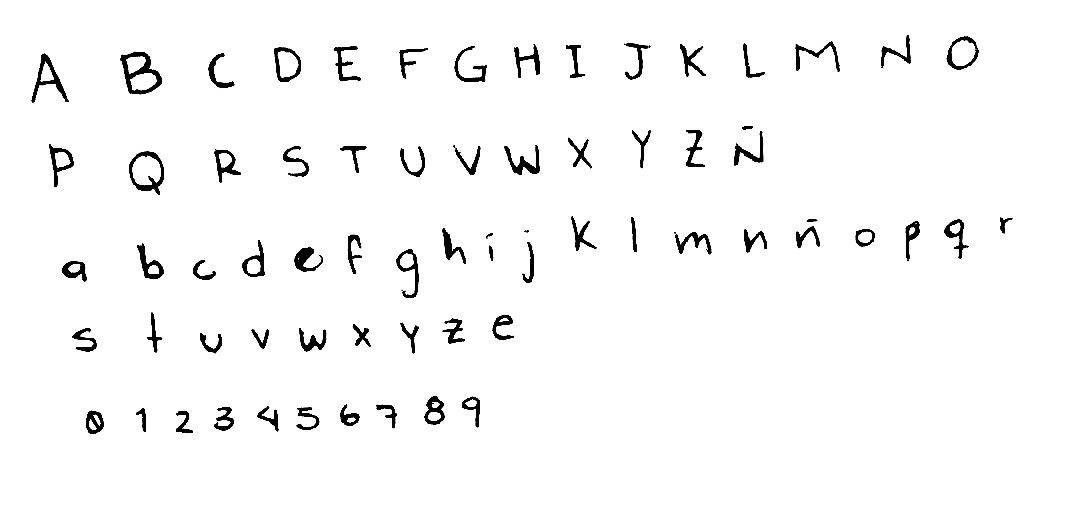 A B C D E F G H I J K L M N O
P Q R S T U V W X Y Z Ñ
a b c d e f g h i j k l m n ñ o p q r
s t u v w x y z e
0 1 2 3 4 5 6 7 8 9